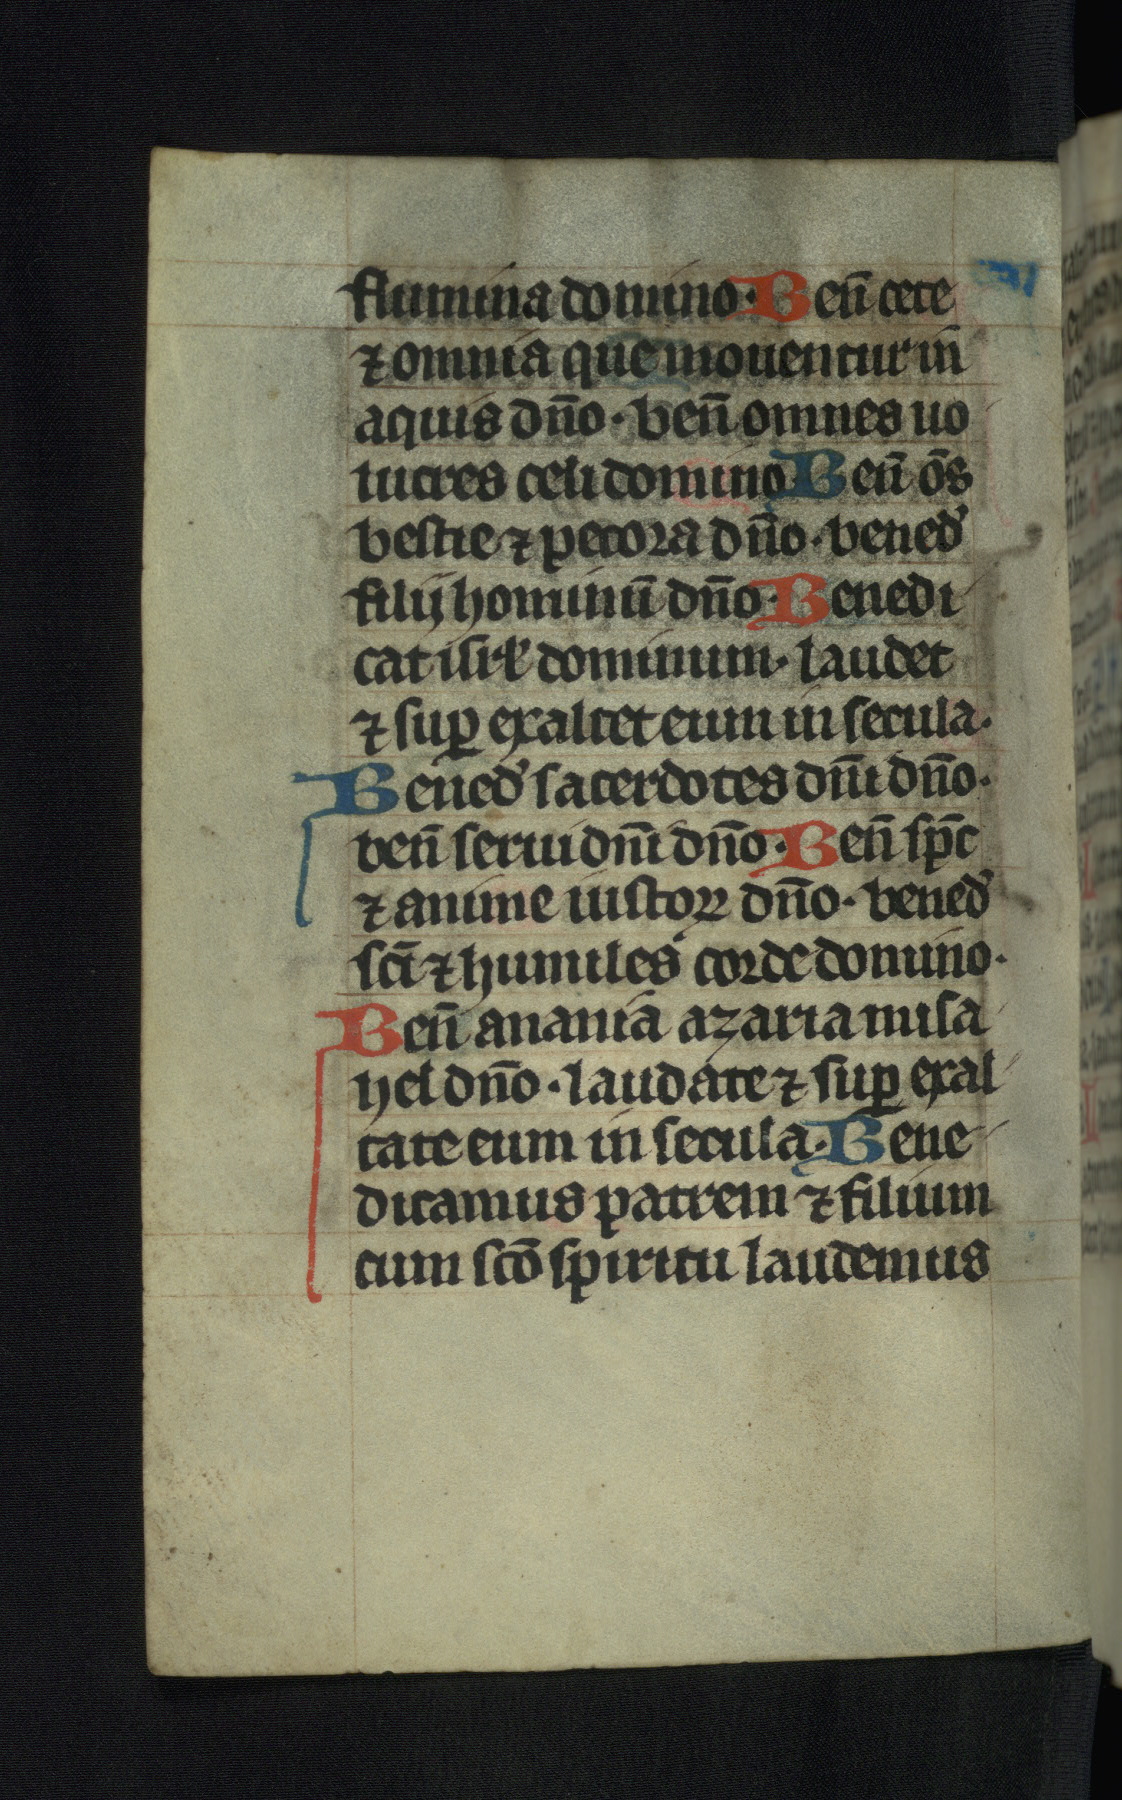 flumina domino · Ben̄ cete
⁊ omnia que mouentur in̄
aquis dn̄o · ben̄ omnes uo
lucres celi domino Ben̄ ōs
bestie ⁊ pecora dn̄o · bened̉
filij hominū dn̄o · Benedi
cat isrl̉ dominum · laudet
⁊ suꝑ exaltet eum in secula ·
Bened̉ sacerdotes dn̄i dn̄o ·
ben̄ serui dn̄i dn̄o · Ben̄ sp̄c
⁊ anime iustoꝝ dn̄o · bened̉
sc̄i ⁊ humiles corde domino ·
Ben̄ anania azaria misa
hel dn̄o · laudate ⁊ suꝑ exal
tate eum in secula · Bene
dicamus patrem ⁊ filium
cum sc̄o spiritu laudemus